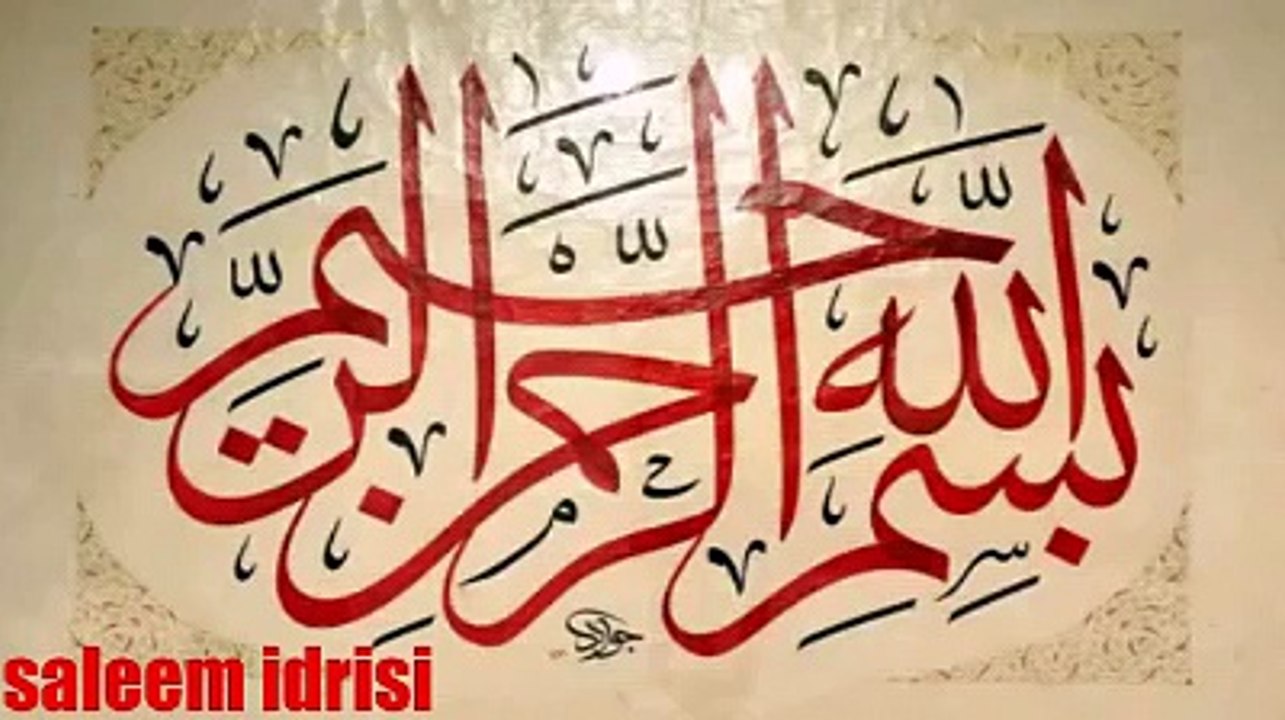 بِسْمِ اللهِ الرَّحْمٰنِ الرَّحِيْمِ
saleem idrisi